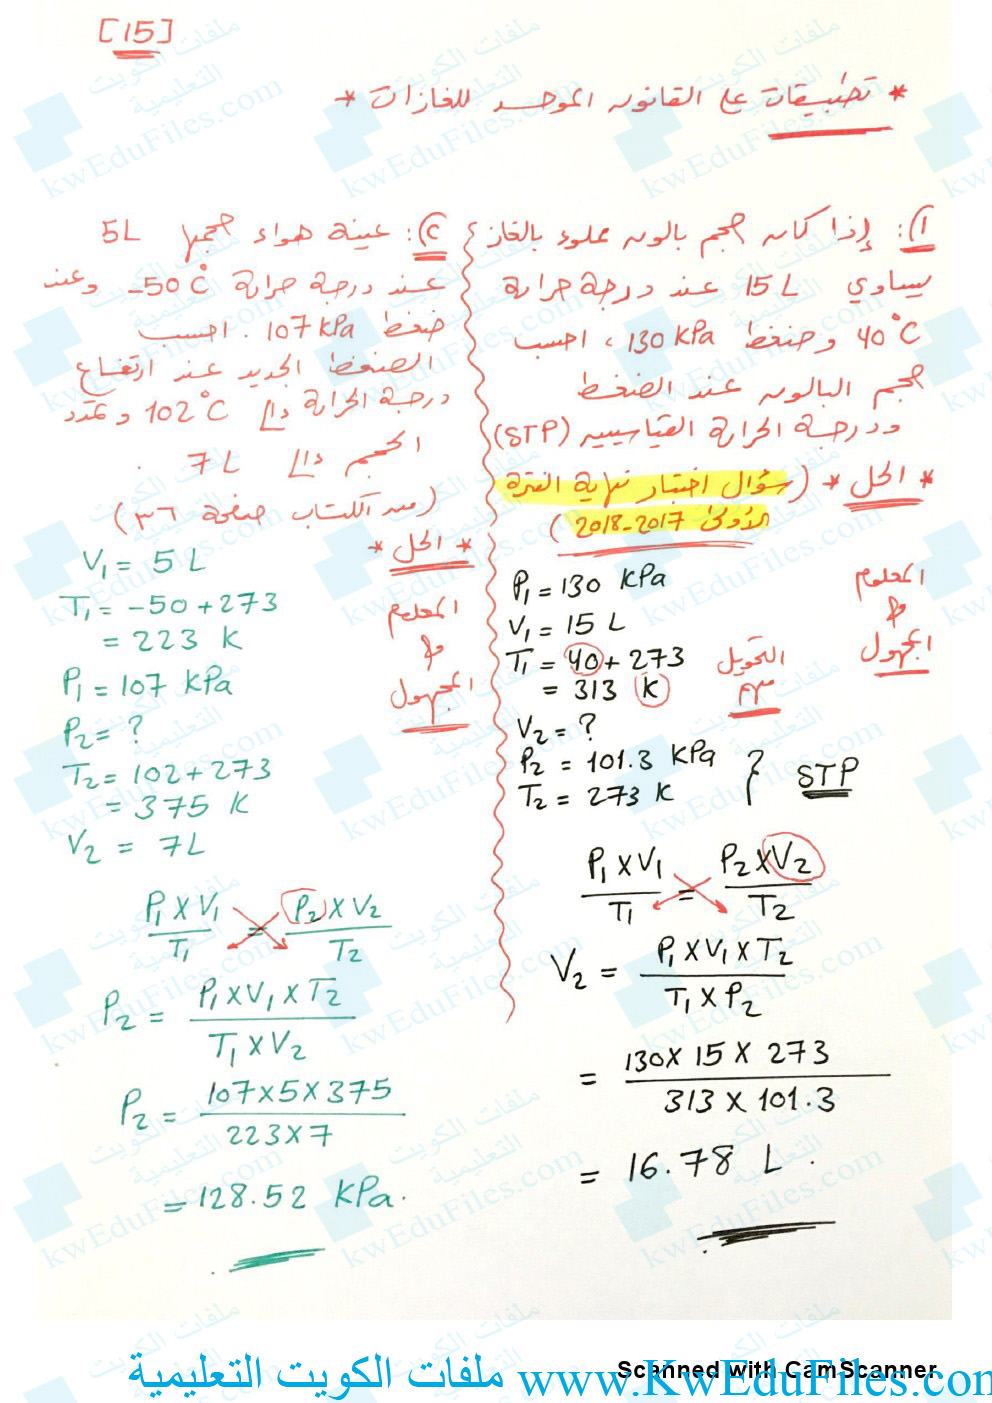 [15]
* تطبيقات على القانون الموحد للغازات *
1): إذا كان حجم بالون مملوء بالغاز
يساوي 15 L عند درجة حرارة
40°C وضغط 130 kPa ، احسب
حجم البالون عند الضغط
ودرجة الحرارة القياسيين (STP)
* الحل * (سؤال اختبار نهاية الفترة
الأولى 2017-2018)
المعلوم
و
المجهول
P₁ = 130 kPa
V₁ = 15 L
T₁ = 40 + 273
= 313 K
التحويل
مهم
V₂ = ?
P₂ = 101.3 kPa
T₂ = 273 K
} STP
P₁ x V₁ / T₁ = P₂ x V₂ / T₂
V₂ = P₁ x V₁ x T₂ / T₁ x P₂
= 130 x 15 x 273 / 313 x 101.3
= 16.78 L .
2): عينة هواء حجمها 5L
عند درجة حرارة -50°C وعند
ضغط 107 kPa . احسب
الضغط الجديد عند ارتفاع
درجة الحرارة إلى 102°C وتمدد
الحجم إلى 7 L .
(من الكتاب صفحة ٣٦)
* الحل *
المعلوم
و
المجهول
V₁ = 5 L
T₁ = -50 + 273
= 223 K
P₁ = 107 kPa
P₂ = ?
T₂ = 102 + 273
= 375 K
V₂ = 7L
P₁ x V₁ / T₁ = P₂ x V₂ / T₂
P₂ = P₁ x V₁ x T₂ / T₁ x V₂
P₂ = 107 x 5 x 375 / 223 x 7
= 128.52 kPa.
Scanned with CamScanner
www.KwEduFiles.com ملفات الكويت التعليمية